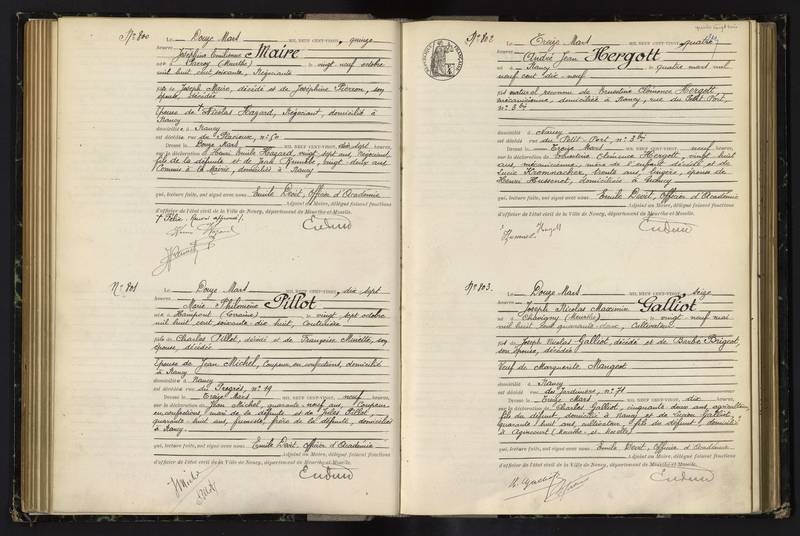 N° 800
Le Douze Mars MIL NEUF CENT-VINGT, quinze
heures
Joséphine Emilienne Maire
née à Parroy (Meurthe) le vingt neuf octobre
mil huit cent soixante, Négociante
fille de Joseph Maire, décédé et de Joséphine Pierson, son
épouse, décédée
Epouse de † Nicolas Hazard, Négociant, domicilié à
Nancy
domiciliée à Nancy
est décédée rue du Placieux, n° 50
Dressé le Douze Mars dix sept heures,
sur la déclaration de Henri Emile Hazard, vingt sept ans, Négociant
fils de la défunte et de Jean vingt deux ans
Commis à la Mairie, domiciliés à Nancy
qui, lecture faite, ont signé avec nous Emile Devit, Officier d'Académie
Adjoint au Maire, délégué faisant fonctions
d'officier de l'état civil de la Ville de Nancy, département de Meurthe-et-Moselle.
† Félix
N° 801
Le Douze Mars MIL NEUF CENT-VINGT, dix sept
heures
Marie Philomène Pillot
née à Hampont (Lorraine) le vingt sept octobre
mil huit cent soixante dix huit, Couturière
fille de Charles Pillot, décédé et de Françoise son
épouse, décédée
Epouse de Jean Michel, Coupeur en confections, domicilié
à Nancy
domiciliée à Nancy
est décédée rue du Progrès, n° 19
Dressé le Treize Mars neuf heures,
sur la déclaration de Jean Michel, quarante neuf ans, Coupeur
en confections, mari de la défunte et de Jules Pillot
quarante huit ans, frère de la défunte, domiciliés
à Nancy
qui, lecture faite, ont signé avec nous Emile Devit, Officier d'Académie
Adjoint au Maire, délégué faisant fonctions
d'officier de l'état civil de la Ville de Nancy, département de Meurthe-et-Moselle.
N° 802
Le Treize Mars MIL NEUF CENT-VINGT, quatre
heures
André Jean Hergott
né à Nancy le quatre mars mil
neuf cent dix neuf
fils naturel reconnu de Ernestine Clémence Hergott,
mécanicienne, domiciliée à Nancy, rue du Petit Port,
n° 3 bis
domicilié à Nancy
est décédé rue du Petit Port, n° 3 bis
Dressé le Treize Mars neuf heures,
sur la déclaration de Ernestine Clémence Hergott, vingt huit
ans, mécanicienne, mère de l'enfant décédé et de
Lucie trente ans, lingère, épouse de
Henri domiciliées à Nancy
qui, lecture faite, ont signé avec nous Emile Devit, Officier d'Académie
Adjoint au Maire, délégué faisant fonctions
d'officier de l'état civil de la Ville de Nancy, département de Meurthe-et-Moselle.
N° 803.
Le Douze Mars MIL NEUF CENT-VINGT, seize
heures
Joseph Nicolas Maximin Galliot
né à Chavigny (Meurthe) le vingt neuf mai
mil huit cent quarante deux, Cultivateur
fils de Joseph Nicolas Galliot, décédé et de Barbe Brigeot,
son épouse, décédée
Veuf de Marguerite Mangeot
domicilié à Nancy
est décédé rue du Jardiniers, n° 71
Dressé le Treize Mars dix heures,
sur la déclaration de Charles Galliot, cinquante deux ans, agriculteur
fils du défunt, domicilié à Nancy et de Lucien Galliot,
quarante huit ans, cultivateur, fils du défunt, domicilié
à Agincourt (Meurthe-et-Moselle)
qui, lecture faite, ont signé avec nous Emile Devit, Officier d'Académie
Adjoint au Maire, délégué faisant fonctions
d'officier de l'état civil de la Ville de Nancy, département de Meurthe-et-Moselle.